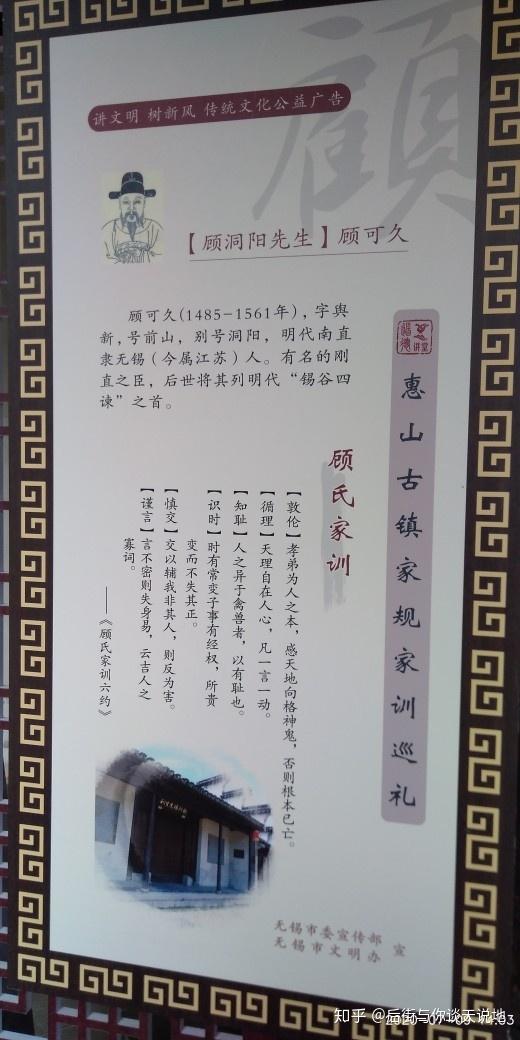 顧
讲文明 树新风 传统文化公益广告
【顾洞阳先生】顾可久
顾可久(1485-1561年),字與
新,号前山，别号洞阳，明代南直
隶无锡（今属江苏）人。有名的刚
直之臣，后世将其列明代“锡谷四
谏”之首。
讲堂
惠山古镇家规家训巡礼
顾氏家训
【敦伦】孝弟为人之本，感天地向格神鬼，否则根本已亡。
【循理】天理自在人心，凡一言一动。
【知耻】人之异于禽兽者，以有耻也。
【识时】时有常变子事有经权，所贵
变而不失其正。
【慎交】交以辅我非其人，则反为害。
【谨言】言不密则失身易，云吉人之
寡词。
——《顾氏家训六约》
无锡市委宣传部
无锡市文明办
宣
知乎 @后街与你谈天说地